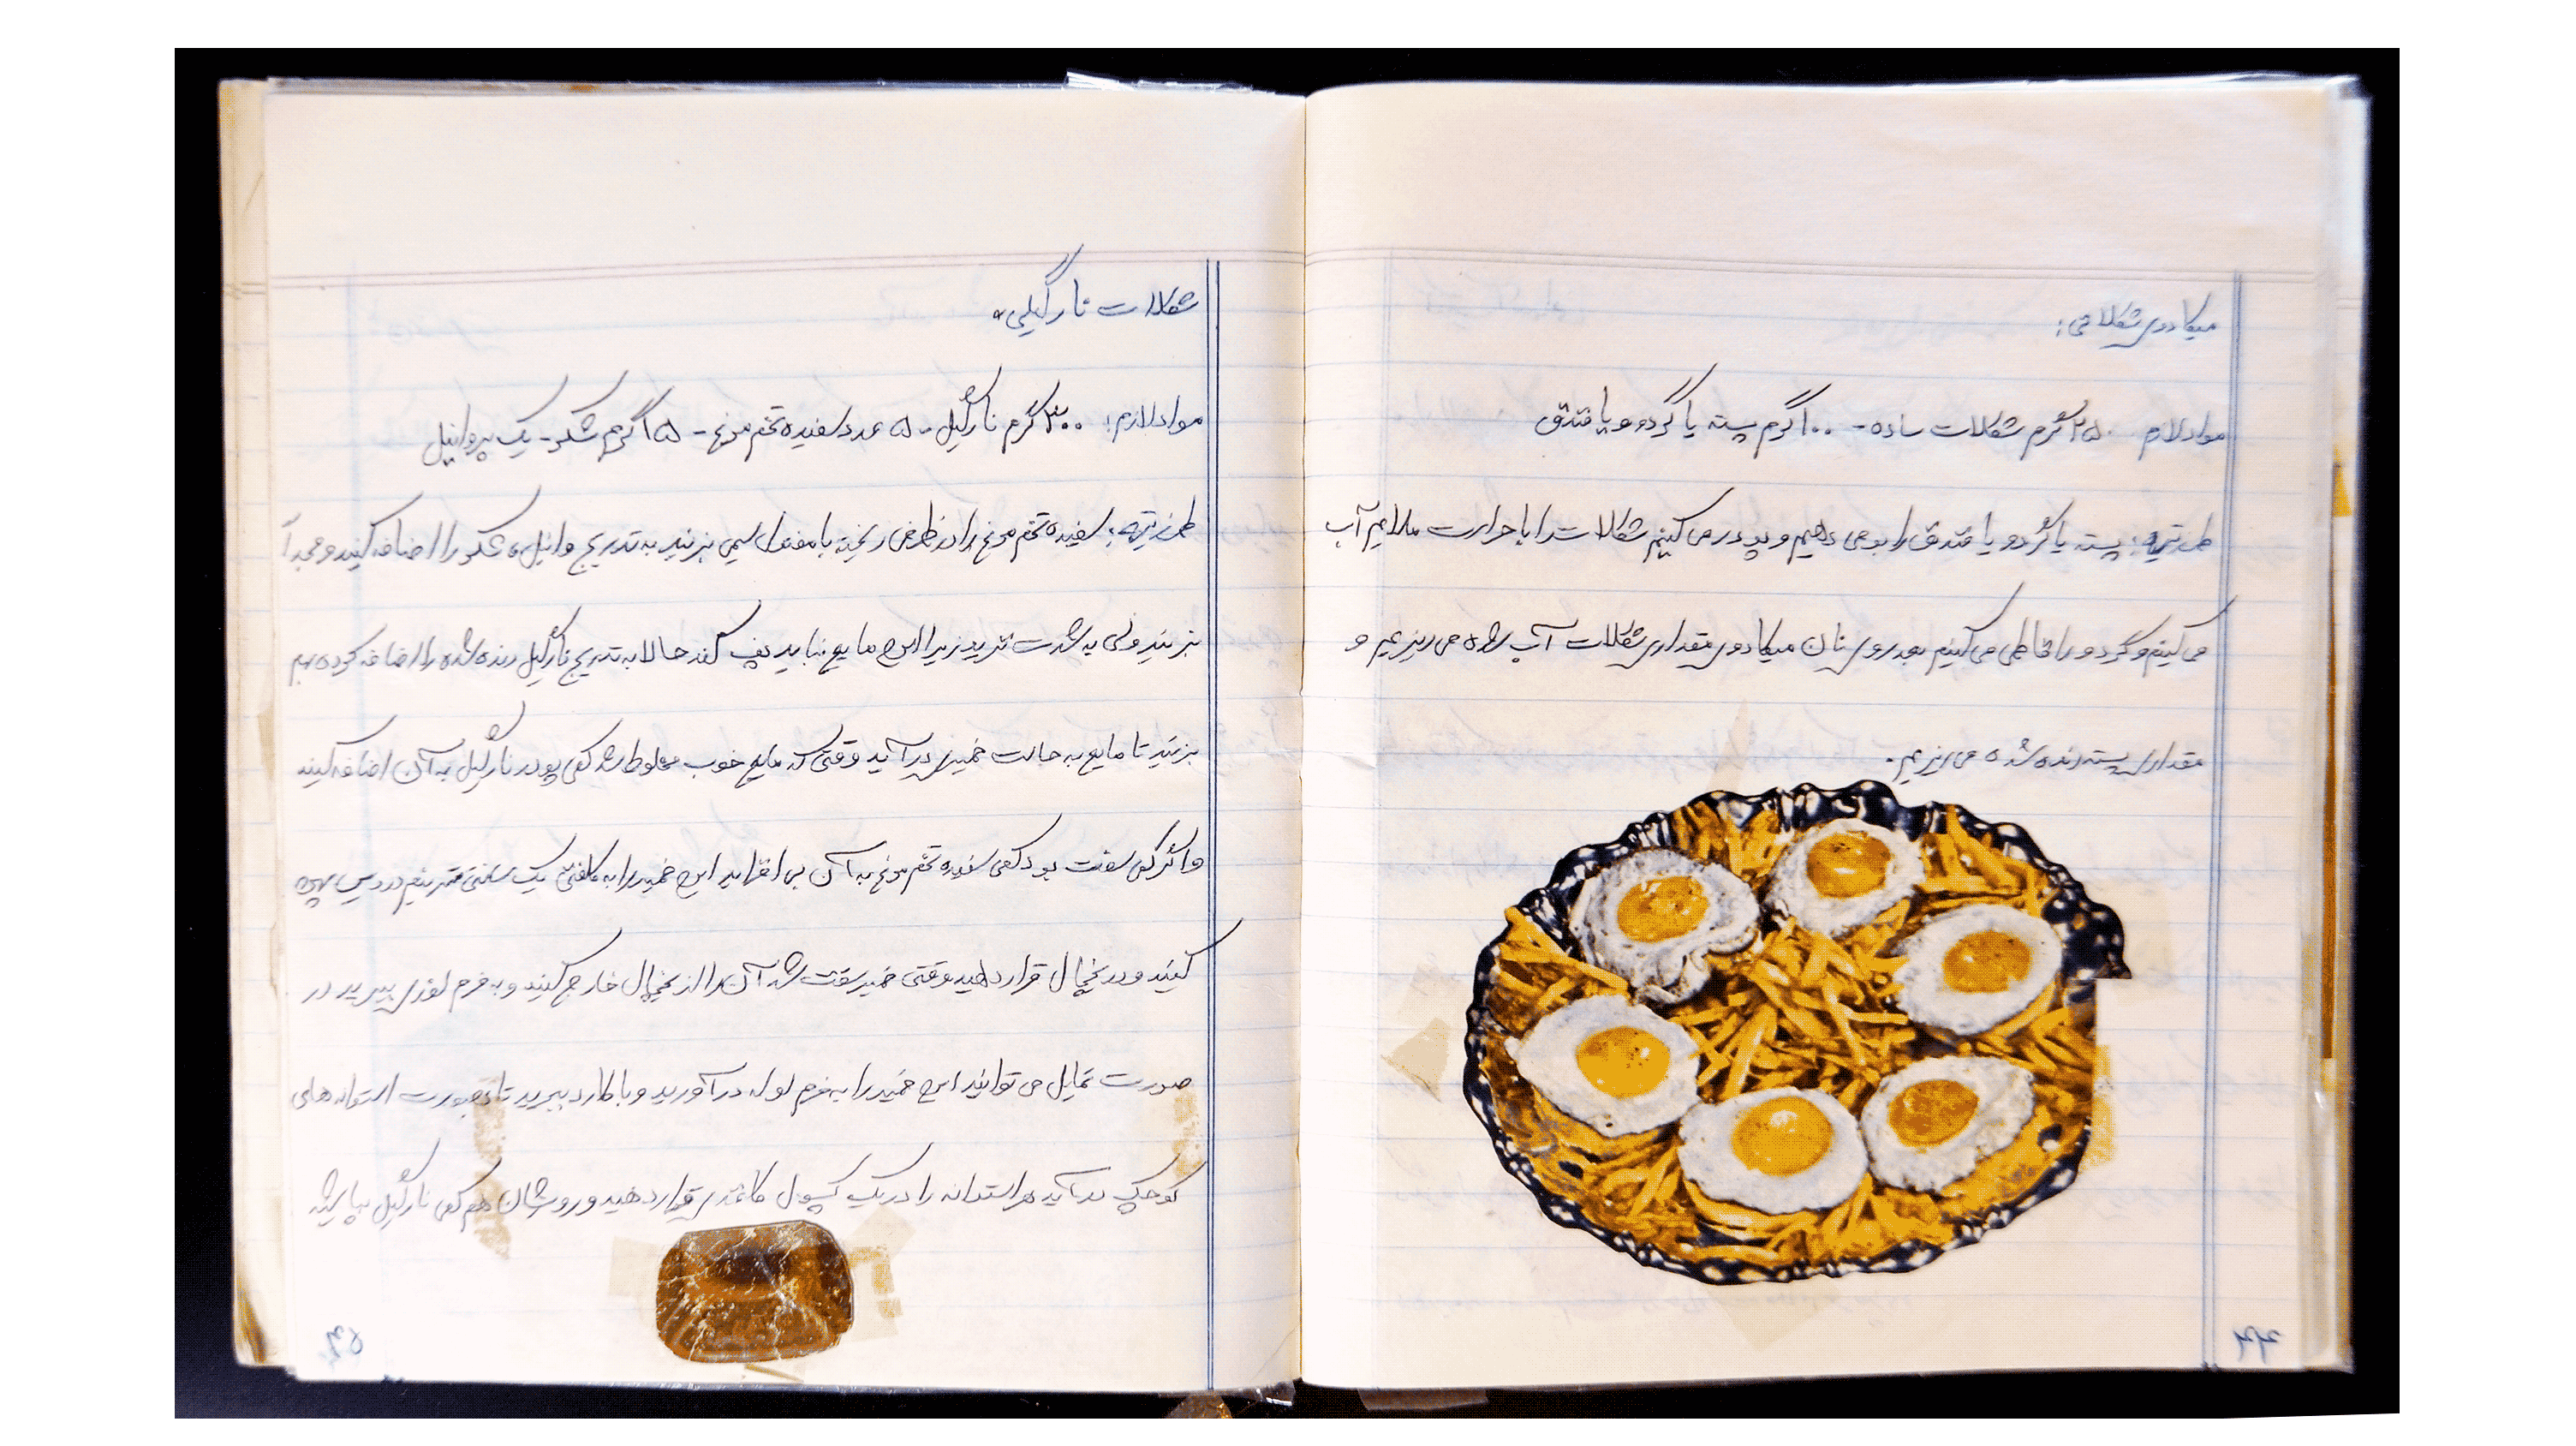 میکادوی شکلاتی:
مواد لازم ۲۵۰ گرم شکلات ساده - ۱۰۰ گرم پسته یا گردو و یا فندق
طرز تهیه: پسته یا گردو یا فندق را بو می دهیم و پودر می کنیم شکلات را با حرارت ملایم آب
می کنیم و گردو را قاطی می کنیم بعد روی نان میکادوی مقداری شکلات آب شده می ریزیم و
مقداری پسته رنده شده می ریزیم.
شکلات نارگیلی
مواد لازم: ۳۰۰ گرم نارگیل - ۵ عدد سفیده تخم مرغ - ۱۵ گرم شکر - یک پر وانیل
طرز تهیه: سفیده تخم مرغ را در ظرفی ریخته با مفتول سیمی بزنید به تدریج وانیل و شکر را اضافه کنید و مجدآ
بزنید ولی به شدت نزنید زیرا این مایع نباید پف کند حالا به تدریج نارگیل رنده شده را اضافه کرده بهم
بزنید تا مایع به حالت خمیری درآید وقتی که مایع خوب مخلوط شد کمی پودر نارگیل به آن اضافه کنید
و اگر کمی سفت بود کمی سفیده تخم مرغ به آن بی افزاید این خمیر را به کلفتی یک سانتی متر نیم در دیس پهن
کنید و در یخچال قرار دهید وقتی خمیر سفت شد آن را از یخچال خارج کنید و به فرم لوزی ببرید در
صورت تمایل می توانید این خمیر را به فرم لوله در آورید و با کارد ببرید تا بصورت استوانه های
کوچک در آید هر استوانه را در یک کپسول کاغذی قرار دهید و روشان هم کمی نارگیل بپاشید